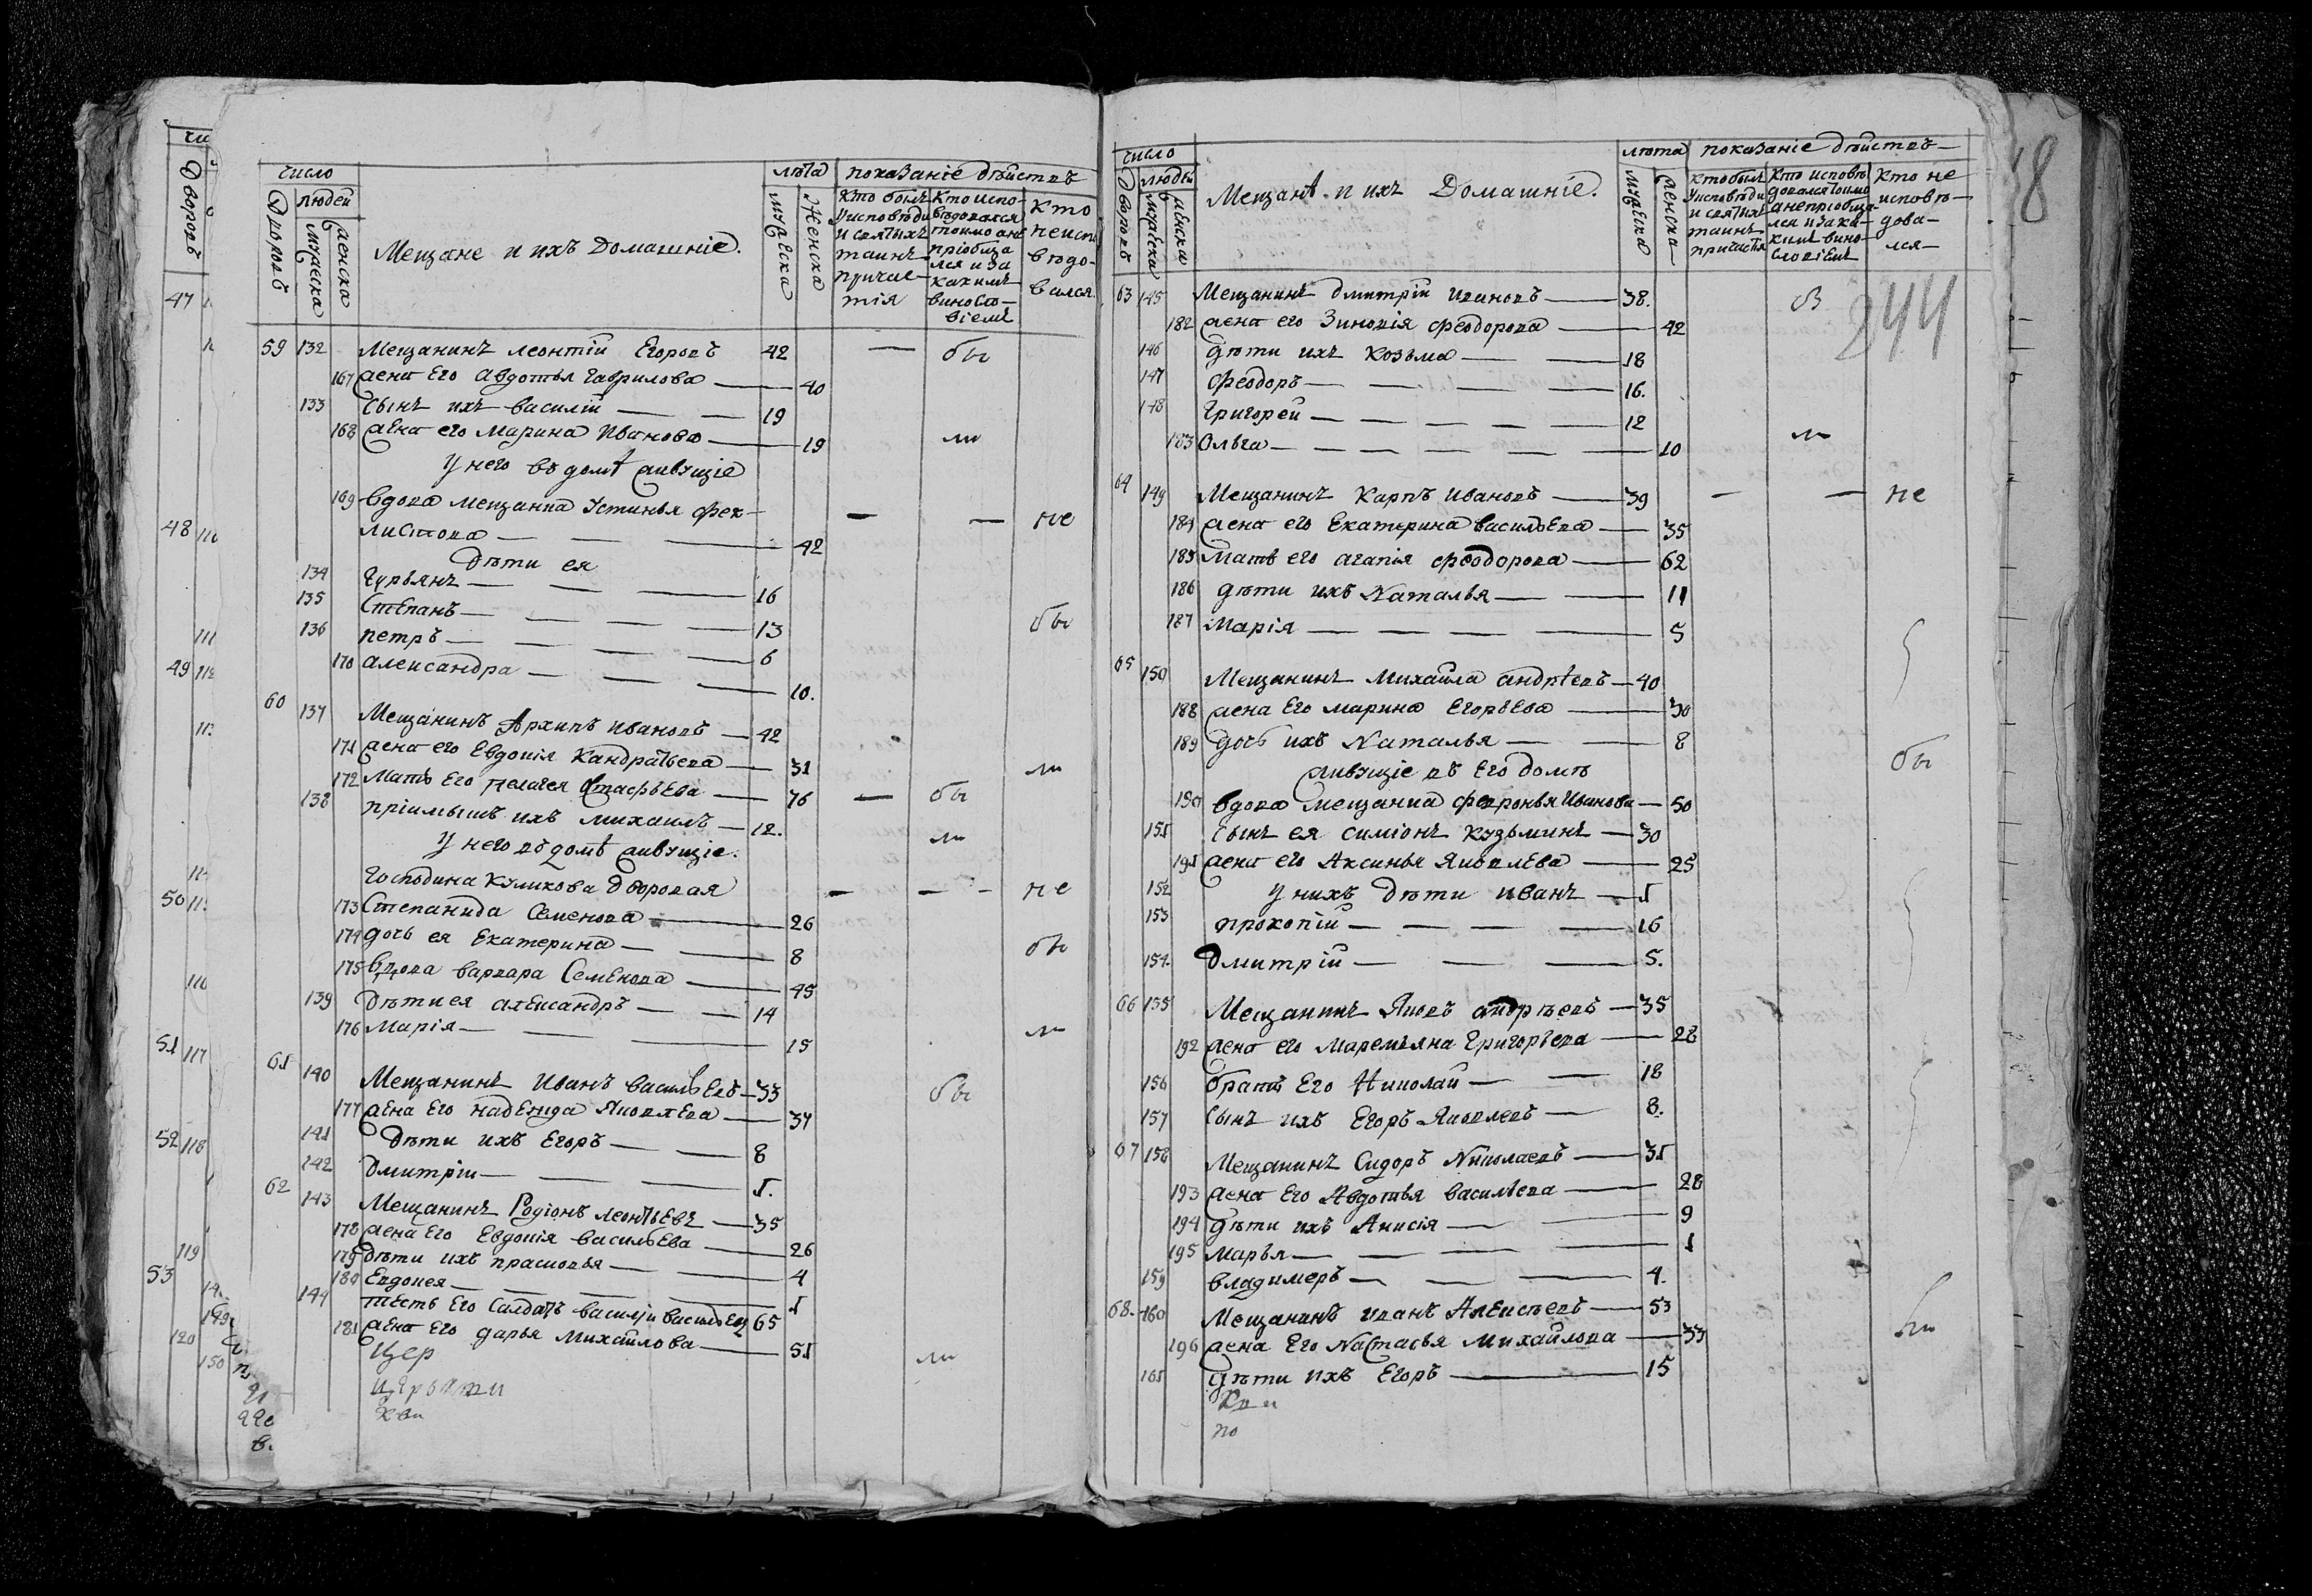 число
людей
Дворовъ
мужеска
женска
Мещане и ихъ Домашніе.
лѣта
мужеска
женска
показаніе дѣйствъ
Кто былъ
у исповѣди
и святыхъ
таинъ
причас-
тія
Кто испо-
вѣдовался
токмо а не
пріобща
лся и за
какимъ
винослo-
віемъ
кто
неиспо
вѣдо-
вался
59 132 Мещанинъ леонтіи Егоровъ 42 — бы
167 жена Его авдотья гаврилова — 40
133 сынъ ихъ василіи — — 19
168 жена его Марина Иванова — 19 ли
У него въ домѣ живущіе
169 вдова мещанка Устинья фек-
листова — — — 42 — — не
дѣти ея
134 Гурьянъ — — — 16
135 Степанъ — — — — 13 бы
136 петръ — — — — 6
170 александра — — — 10.
60 137 Мещанинъ Архипъ ивановъ — 42
171 жена его Евдокія Кандратьева — 31 ли
172 Мать Его пелагея Стафѣева — 76 — бы
138 пріимышъ ихъ михаилъ — 12.
У него въ домѣ живущіе. ли
Господина куликова дворовая — — - не
173 Степанида Семенова — 26
174 дочь ея Екатерина — — 8 бы
175 вдова варвара Семенова — 45
139 дѣти ея александръ — — 14
176 Марія — — — 15 ли
61 140 Мещанинъ Иванъ васильевъ — 33 бы
177 жена Его надежда Яковлева — 37
141 дѣти ихъ Егоръ — — 8
142 дмитріи — — — 1.
62 143 Мещанинъ Родіонъ леонтьевъ — 35
178 жена Его Евдокія васильева — 26
179 дѣти ихъ прасковья — — 4
180 Евдокея — — — — 1
144 тесть Его Салдатъ василіи васильевъ 65
181 жена Его дарья михаилова — 51
цер ли
47
48
49
50
51 117
52 118
119
53
120
150
число
людей
дворовъ
мужеска
женска
Мещанѣ и ихъ Домашніе.
лѣта
мужеска
женска
показаніе дѣйствъ —
Кто былъ
у исповѣди
и святыхъ
таинъ
причастія
Кто исповѣ
довался токмо
а не пріобща-
лся и за ка-
кимъ вино-
словіемъ
кто не
исповѣ-
дова-
лся —
8
244
63 145 Мещанинъ дмитріи ивановъ — 38.
182 жена его Зиновія феодорова — 42
146 дѣти ихъ козьма — — 18
147 феодоръ — — — — 16.
148 Григореи — — — — 12
183 Ольга — — — — — — 10
64 149 Мещанинъ Карпъ ивановъ — 39 — — не
184 жена его Екатерина васильева — 35
185 Мать его агапія феодорова — 62
186 дѣти ихъ Наталья — — 11
187 Марія — — — — 5
65 150 Мещанинъ Михаила андрѣевъ — 40
188 жена Его марина Егорьева — 30
189 дочь ихъ Наталья — — 8
живущіе въ Его домѣ бы
190 вдова мещанка февронья Иванова — 50
151 сынъ ея симіонъ кузьминъ — 30
191 жена его Аксинья Яковлева — 25
152 У нихъ дѣти иванъ — 1
153 прокопіи — — — — 16
154. дмитріи — — — 5.
66 155 Мещанинъ Яковъ андрѣевъ — 35
192 жена его маремьяна Григорьева — 28
156 братъ Его Николаи — — 18
157 сынъ ихъ Егоръ Яковлевъ — 8.
67 158 Мещанинъ Сидоръ Николаевъ — 31
193 жена Его Авдотья васильева — 28
194 дѣти ихъ Анисія — — 9
195 марья — — — — 1
159 владимеръ — — — 4.
68. 160 Мещанинъ иванъ Алексѣевъ — 53
196 жена Его Настасья михаилова — 33 ли
161 дѣти ихъ Егоръ — 15
по